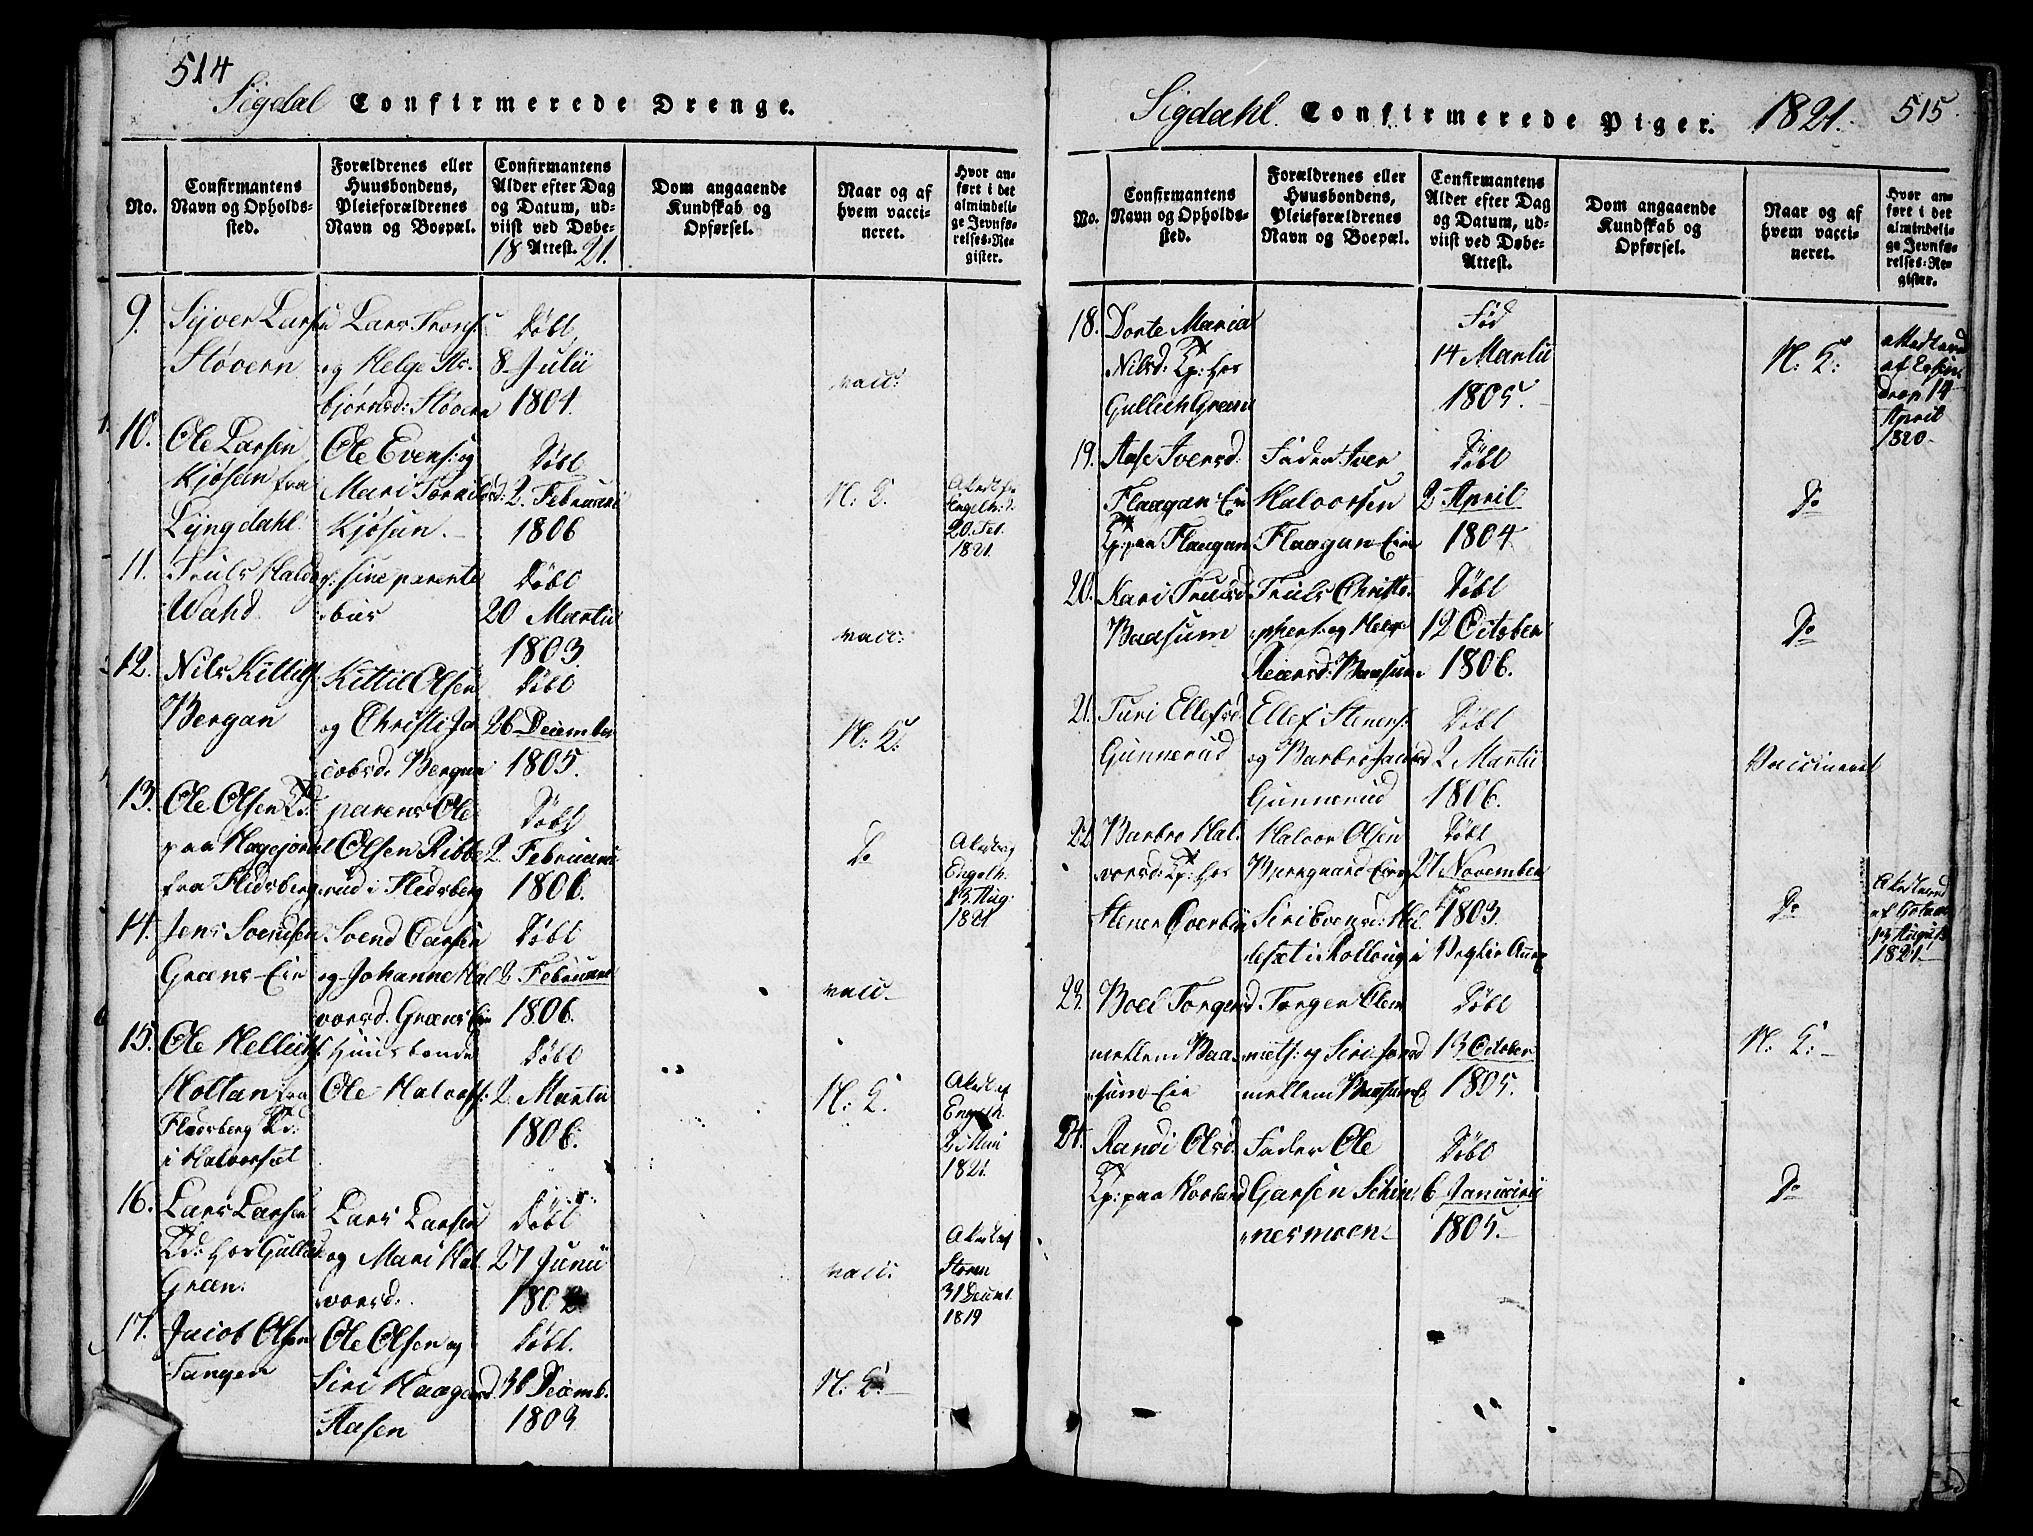 514
Sigdal Confirmerede Drenge.
No.
Confirmantens
Navn og Opholds-
sted.
Forældrenes eller
Huusbondens,
Pleieforældrenes
Navn og Boepæl.
Confirmantens
Alder efter Dag
og Datum, ud-
viist ved Døbe-
Attest.
18 21.
Dom angaaende
Kundskab og
Opførsel.
Naar og af
hvem vacci-
neret.
Hvor an-
ført i det
almindeli-
ge Jevnfø-
relses-Re-
gister.
9.
Støvern
Lars
og Helge As-
bjørnsd: Støvern
Døbt
8 Julii
1804.
vacc:
10.
Ole Larsen
Kjøsen fra
Lyngdahl.
Ole Evens: og
Mari
Kjøsen.
Døbt
2. Februari
1806
N: K.
Engelh:
20. Feb.
1821.
11.
Truls
Wahd
sine parenti
-bus
Døbt
20 Martii
1803.
vacc:
12.
Nils Kittils:
Bergan
Kittil Olsen
og Christi Ja
cobsd. Bergan
Døbt
26 December
1805.
N: K:
13.
Ole Olsen
paa
fra Flesberg
parens Ole
Olsen Ribbe
rud i Flesberg
Døbt
2. Februari
1806.
Do
Engelh.
13. Aug:
1821
14.
Jens Svensen
Græns Eie
Svend Larsen
og Johanne Hal
vorsd. Græns Eie
Døbt
2. Februari
1806.
vacc.
15.
Ole Hellichs:
Holtan fra
Flesberg
i Halvorset
Huusbonde
Ole Halvors:
Døbt
2. Martii
1806.
N: K.
Engelh.
2. Mai
1821.
16.
Lars Larsen
hos Gullik
Græn.
Lars Larsen
og Mari Hal
vorsd.
Døbt
27 Junii
vacc:
31 Decemb.
1819
17.
Jacob Olsen
Tangen
Ole Olsen og
Siri Haagensd.
Aasen
Døbt.
Decemb.
1803
N: K.
Sigdahl. Confirmerede Piger. 1821. 515
No.
Confirmantens
Navn og Opholds-
sted.
Forældrenes eller
Huusbondens,
Pleieforældrenes
Navn og Boepæl.
Confirmantens
Alder efter Dag
og Datum, ud-
viist ved Døbe-
Attest.
Dom angaaende
Kundskab og
Opførsel.
Naar og af
hvem vacci-
neret.
Hvor an-
ført i det
almindeli-
ge Jevnfø-
relses-Re-
gister.
18.
Dorte Maria
Nilsd: Tp: hos
Gullich Græn
Fød
14 Martii
1805.
N: K:
14
April
1820
19.
Aase Iversd:
Flaagan Eie
Tp: paa Flaagan
Fader Iver
Halvorsen
Flaagan Eie
Døbt
2 April
1804
Do
20.
Kari Trulsd
Baasum
Truls Christo-
phers: og Helge
Reiersd: Baasum
Døbt
12 October
1806.
Do
21.
Turi Ellefsd.
Gunnerud
Ellef Steners:
og Barbro Jacobsd
Gunnerud
Døbt
2 Martii
1806.
Vaccineret
22
Barbro Hal-
vorsd: Tp: hos
Stener Overbÿe
Halvor Olsen
Siri Evensd:
Døbt
27 November
1803
Do
13 August
1821
23.
Boel Torgersd.
mellem Baa-
sum Eie
Torger Clem
mets: og Siri
mellem Baasum E
Døbt
13 October
1805.
N: K:
24.
Randi Olsd.
Tp: paa
Fader Ole
Garsen Skin
-nesmoen
Døbt
6 Januarii
1805.
Do